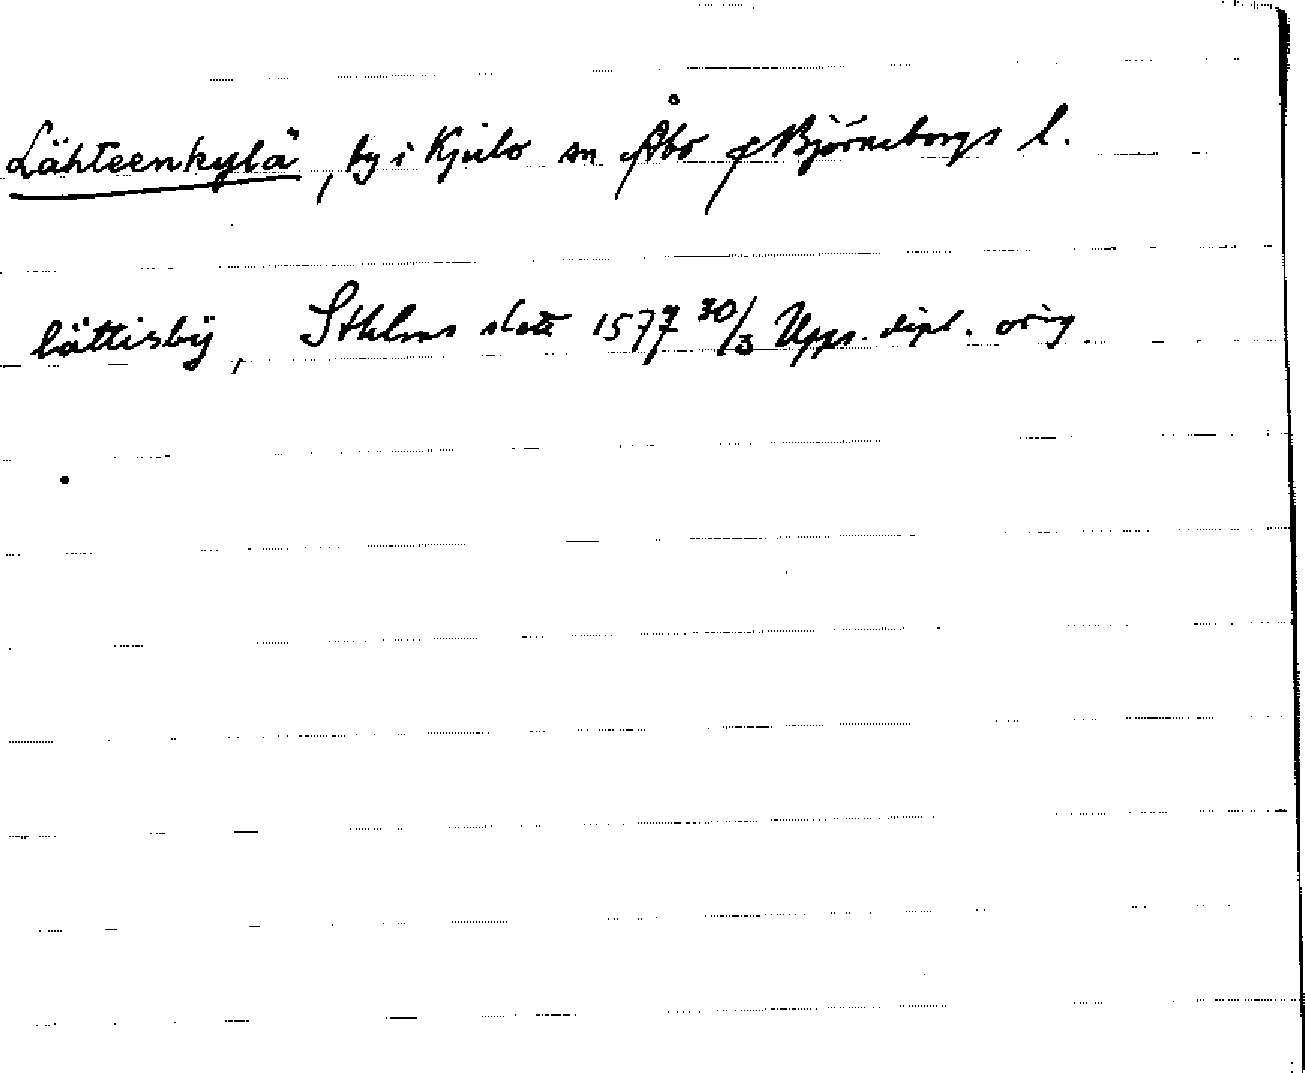 Lähteenkylä, by i Kjulo sn Åbo o Björneborgs l.
lättisbÿ, Sthlms slott 1577 30/3 Upps. dipl. orig